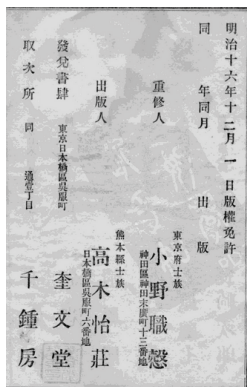 明治十六年十二月一日版權免許
同年同月出版
東京府士族
重修人 小野職愨
神田區神田末廣町十三番地
熊本縣士族
出版人 高木怡莊
日本橋區吳服町六番地
發兌書肆 東京日本橋區吳服町 奎文堂
取次所 同 通壹丁目 千鍾房